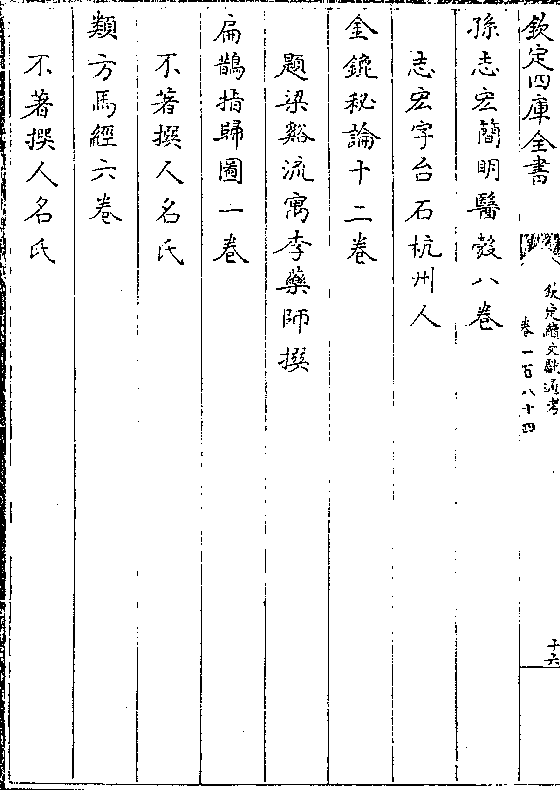 欽定四庫全書
欽定續文獻通考
卷一百八十四
十六
孫志宏簡明醫彀八卷
志宏字台石杭州人
金鎞秘論十二卷
題梁谿流寓李藥師撰
扁鵲指歸圖一卷
不著撰人名氏
類方馬經六卷
不著撰人名氏